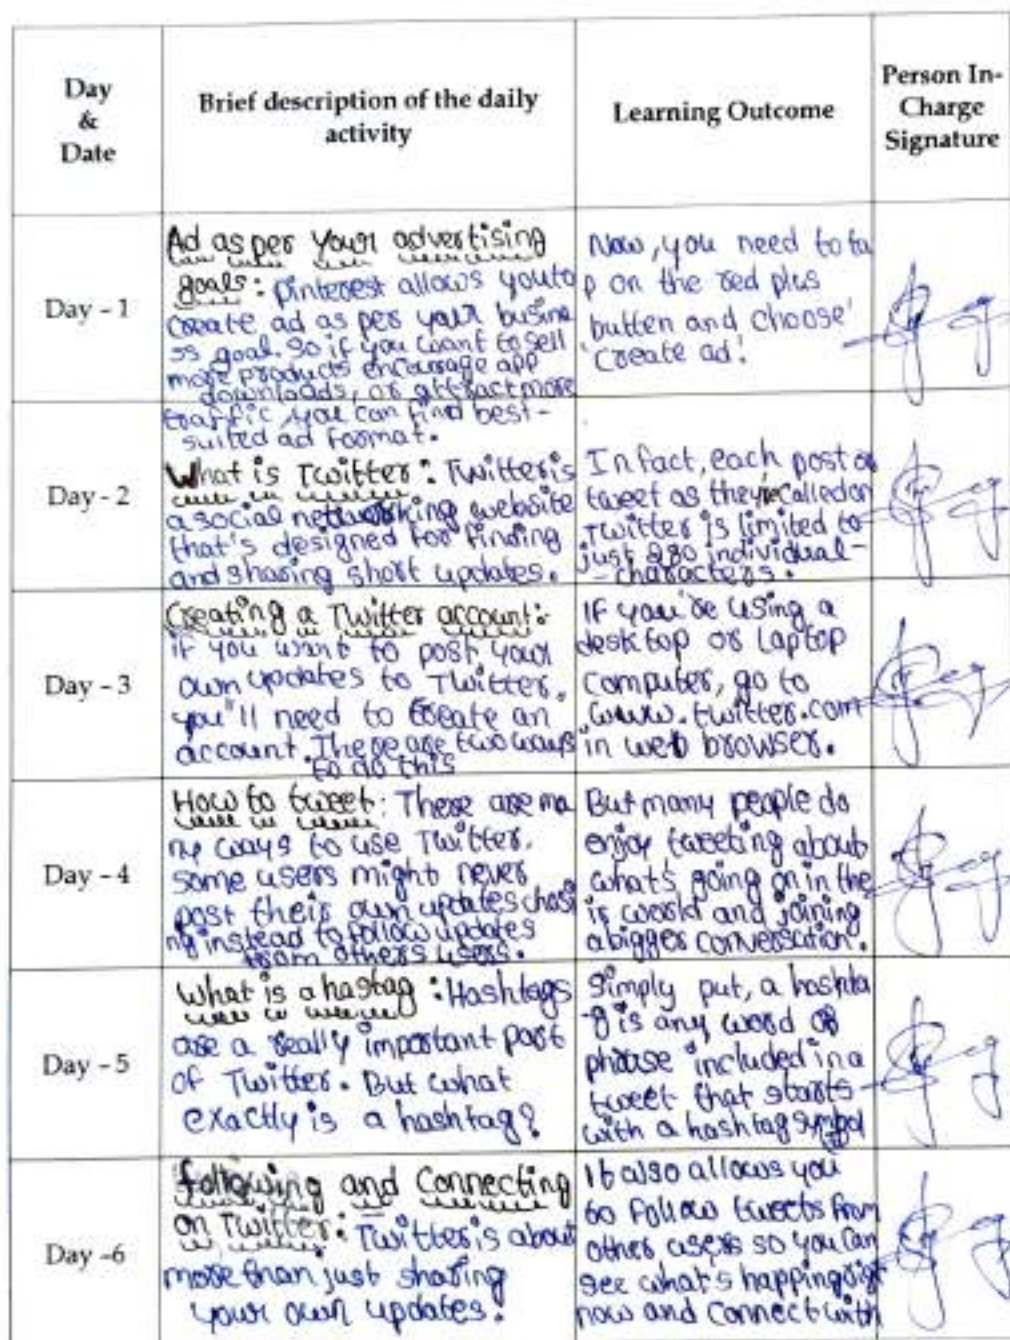 Day
&
Date
Brief description of the daily
activity
Learning Outcome
Person In-
Charge
Signature
Day - 1
Ad as per your advertising
goals: pinterest allows you to
create ad as per your busine
ss goal. so if you want to sell
more products encourage app
downloads, or attract more
traffic, you can find best-
suited ad format.
Now, you need to ta
p on the red plus
butten and choose'
'create ad'.
Day - 2
What is Twitter: Twitter is
a social networking website
that's designed for finding
and sharing short updates.
In fact, each post or
tweet as they're called on
Twitter is limited to
just 280 individual-
- characters.
Day - 3
Creating a Twitter account:
if you want to post your
own updates to Twitter.
you'll need to create an
account. There are two ways
to do this
If you're using a
desktop or laptop
computer, go to
www.twitter.com
in web browser.
Day - 4
How to tweet: There are ma
ny ways to use Twitter.
some users might never
post their own updates choosi
ng instead to follow updates
from others users.
But many people do
enjoy tweeting about
what's going on in the
ir world and joining
a bigger conversation.
Day - 5
What is a hastag: Hashtags
are a really important part
of Twitter. But what
exactly is a hashtag?
Simply put, a hashta
-g is any word or
phrase included in a
tweet that starts
with a hashtag symbol
Day -6
following and Connecting
on Twitter: Twitter is about
more than just sharing
your own updates.
It also allows you
to follow tweets from
other users so you can
see what's happing
now and connect with